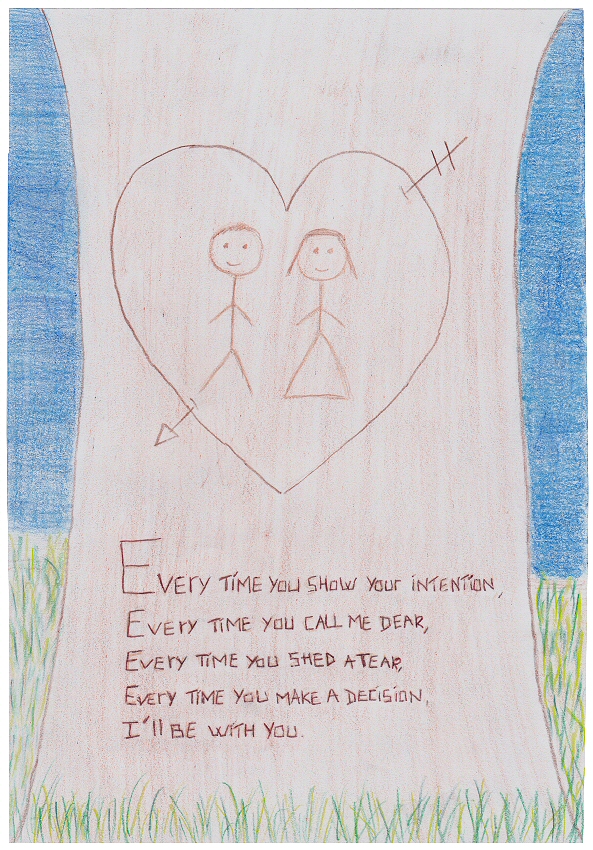 Every time you show your intention,
Every time you call me dear,
Every time you shed a tear,
Every time you make a decision,
I'll be with you.